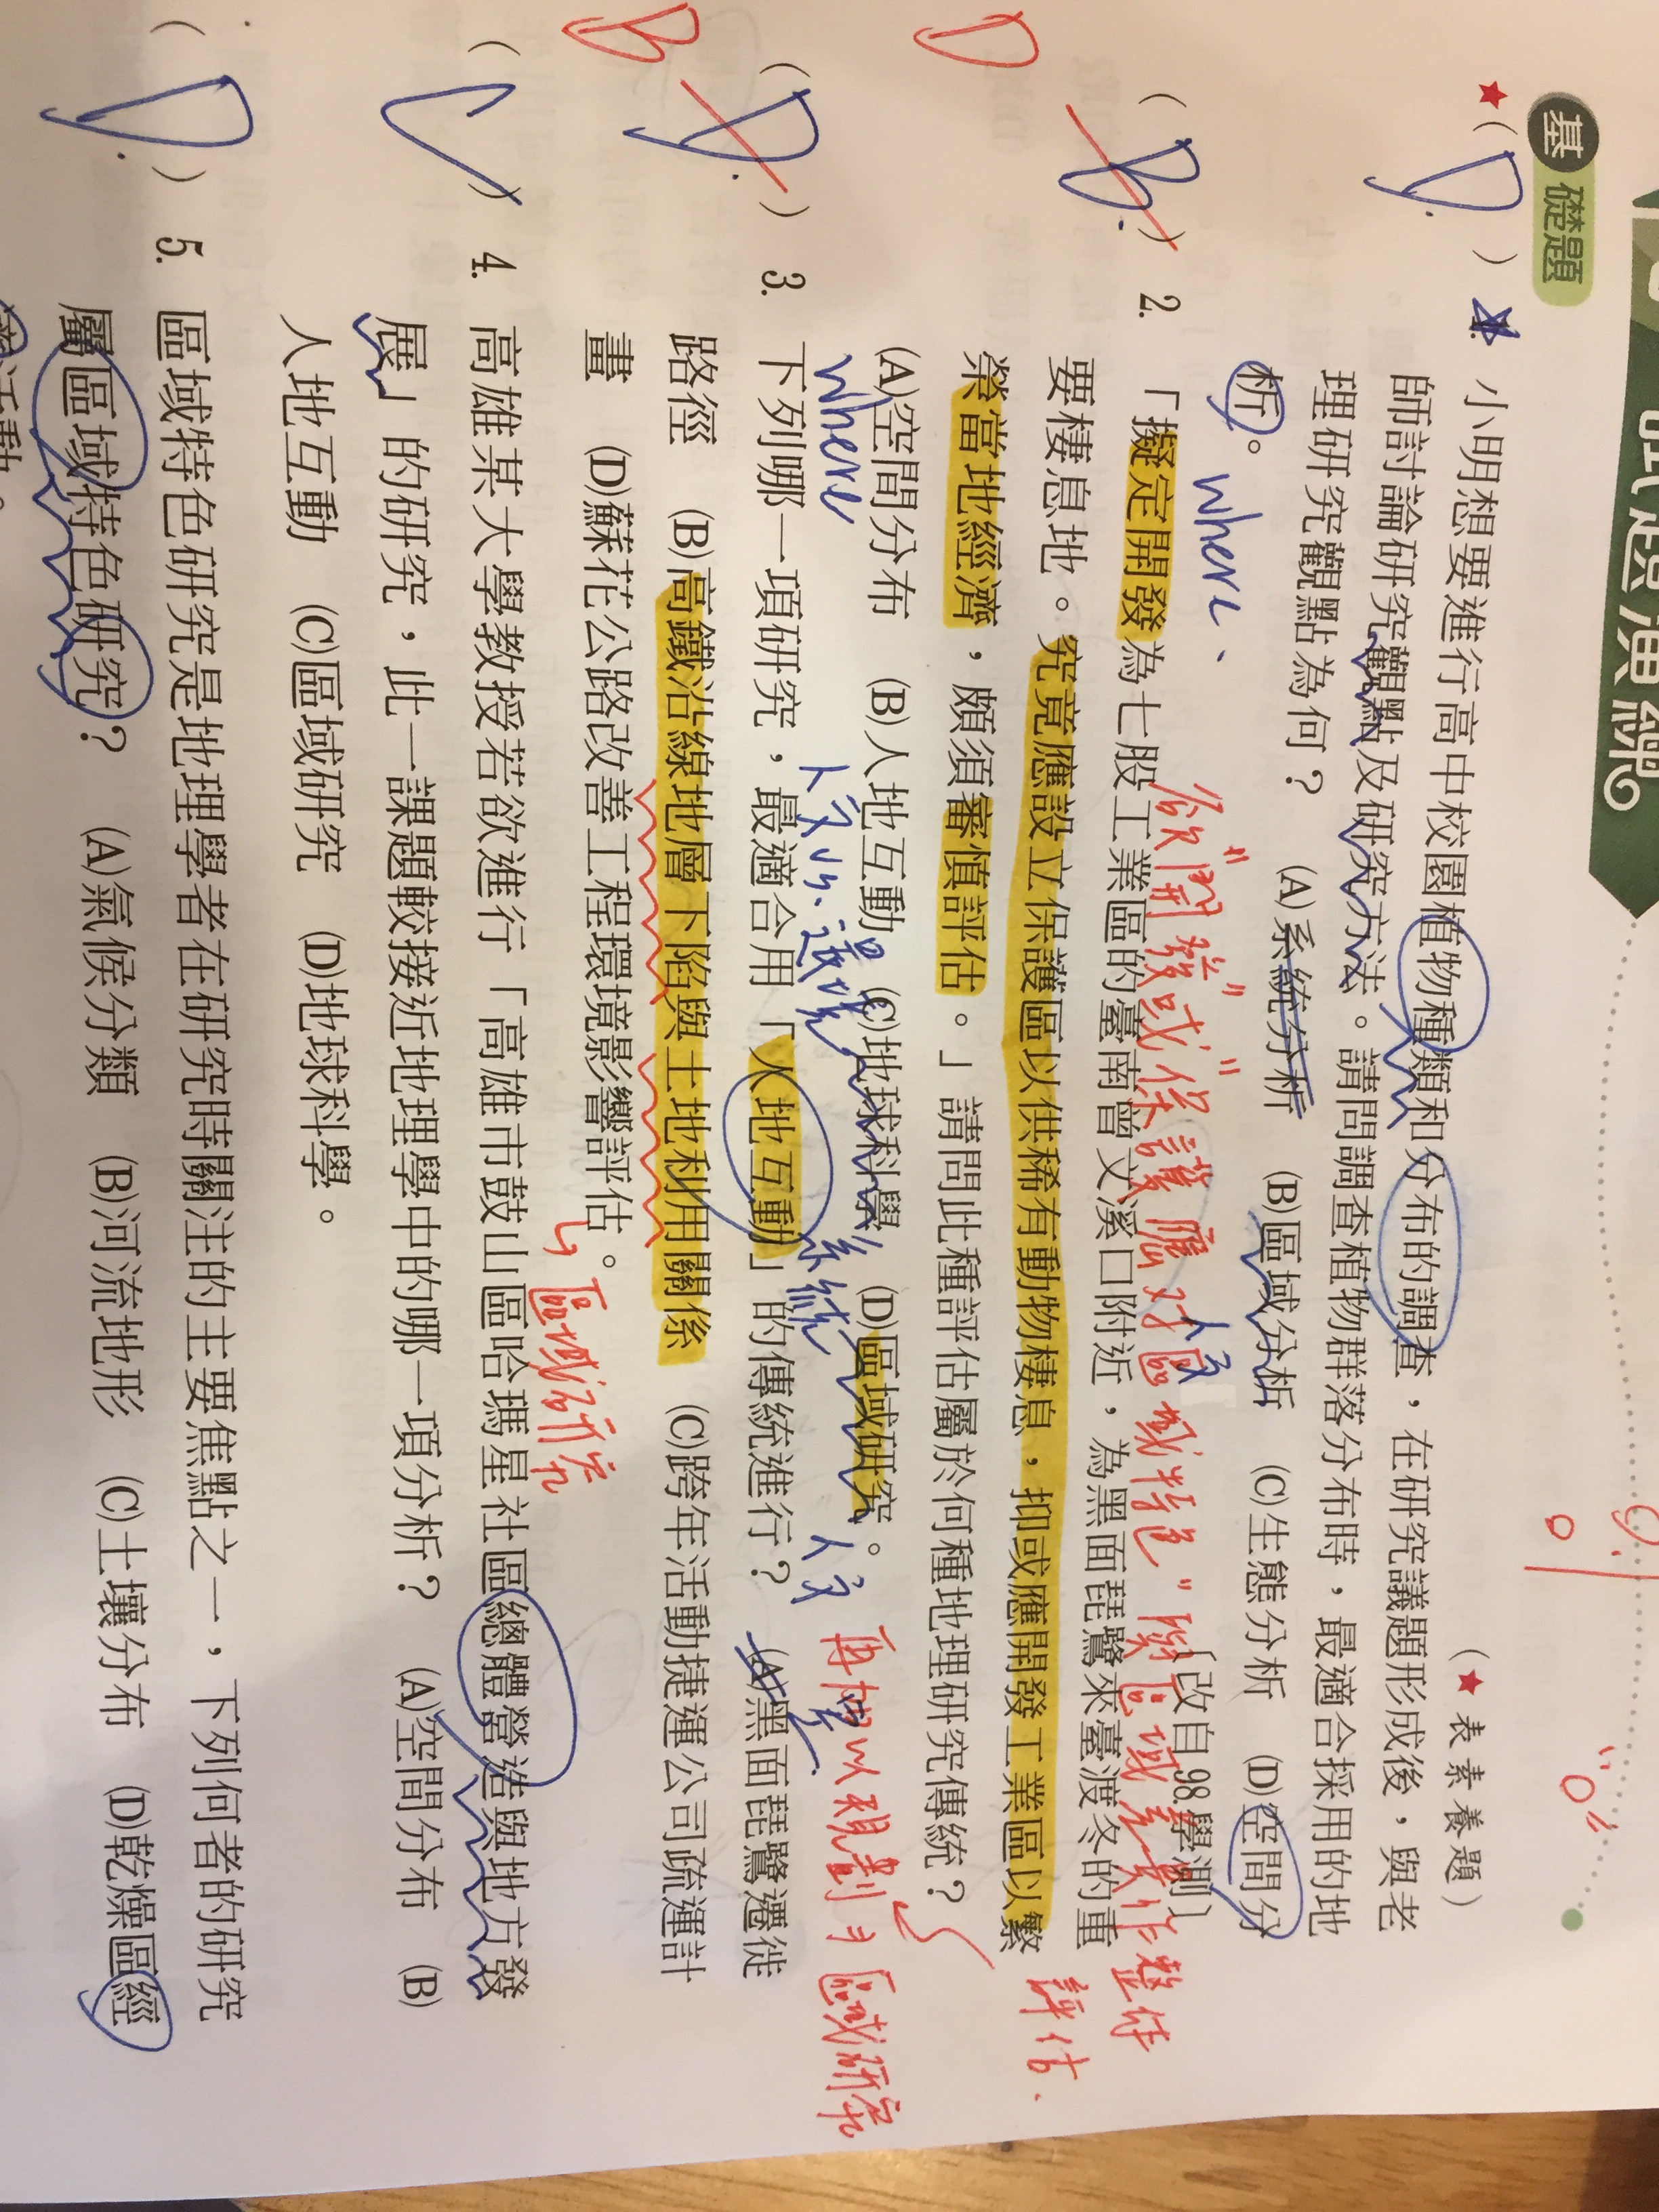 試題演練
基礎題
(★表素養題)
★( D ) 1. 小明想要進行高中校園植物種類和分布的調查，在研究議題形成後，與老
師討論研究觀點及研究方法。請問調查植物群落分布時，最適合採用的地
理研究觀點為何？ (A)系統分析 (B)區域分析 (C)生態分析 (D)空間分
析。
where
〔改自98.學測〕
欲"開發"或"保護"應對"區域特色"與"區域差異作整体
評估
D
( B ) 2. 「擬定開發為七股工業區的臺南曾文溪口附近，為黑面琵鷺來臺渡冬的重
要棲息地。究竟應設立保護區以供稀有動物棲息，抑或應開發工業區以繁
榮當地經濟，頗須審慎評估。」請問此種評估屬於何種地理研究傳統？
(A)空間分布 (B)人地互動 (C)地球科學 (D)區域研究。
where
人文vs.環境
系統
人文
再加以規劃
區域研究
B
( D ) 3. 下列哪一項研究，最適合用「人地互動」的傳統進行？ (A)黑面琵鷺遷徙
路徑 (B)高鐵沿線地層下陷與土地利用關係 (C)跨年活動捷運公司疏運計
畫 (D)蘇花公路改善工程環境影響評估。
區域研究
( C ) 4. 高雄某大學教授若欲進行「高雄市鼓山區哈瑪星社區總體營造與地方發
展」的研究，此一課題較接近地理學中的哪一項分析？ (A)空間分布 (B)
人地互動 (C)區域研究 (D)地球科學。
( D ) 5. 區域特色研究是地理學者在研究時關注的主要焦點之一，下列何者的研究
屬區域特色研究？ (A)氣候分類 (B)河流地形 (C)土壤分布 (D)乾燥區經
濟活動。